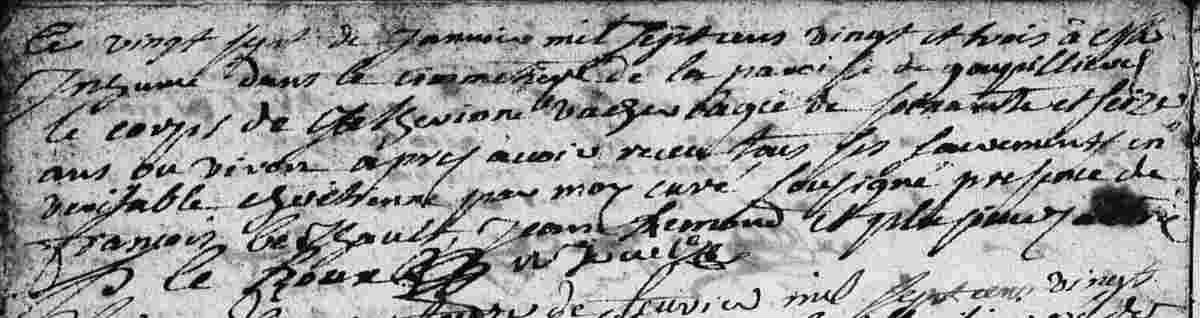 Le vingt sept de Janvier mil Sept cens vingt et trois à esté
Inhumé dans le cimmetiere de la paroisse de goupillieres
le corps de Catherinne vacher âgée de soixante et seize
ans ou viron âpres avoir receu tous ses sacrements en
veritable chrétienne par moy curé sousigné presence de
francois Jean Remond et plusieurs autre
le Roux
de fevrier mil sept cens vingt